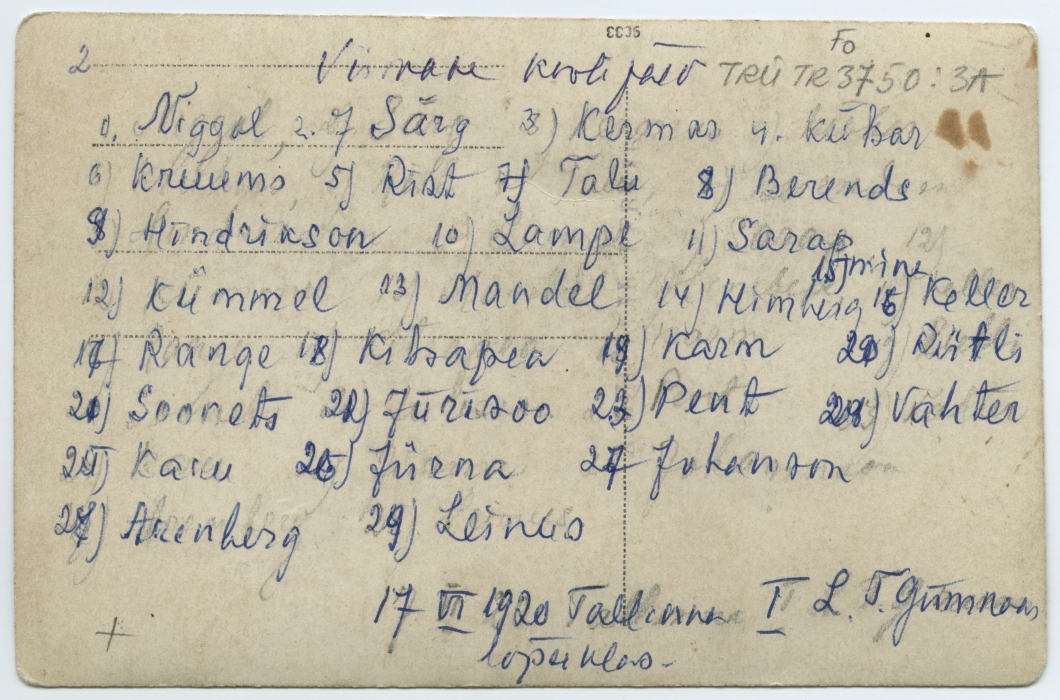 9033
Fo
2 Viimane koolipäev TRÜ TR 3750:3A
1. Niggol, 2. J Särg 3) Kermas 4. Kübar
6) Kreems 5) Rist 7) Talu 8) Berends
9) Hindrikson 10) Lampe 11) Sarap 12)
15) mine
12) Kümmel 13) Mandel 14) Himberg 16) Keller
17) Range 18) Kitsapea 19) Karm 20) Rüütli
21) Soonets 22) Jürisoo 23) Pent 24) Vahter
25) Karu 26) Jürna 27 Johanson
28) Arenberg 29) Leinus
17 VI 1920 Tallinna I L. T. Gümnaas
lõpuklas.